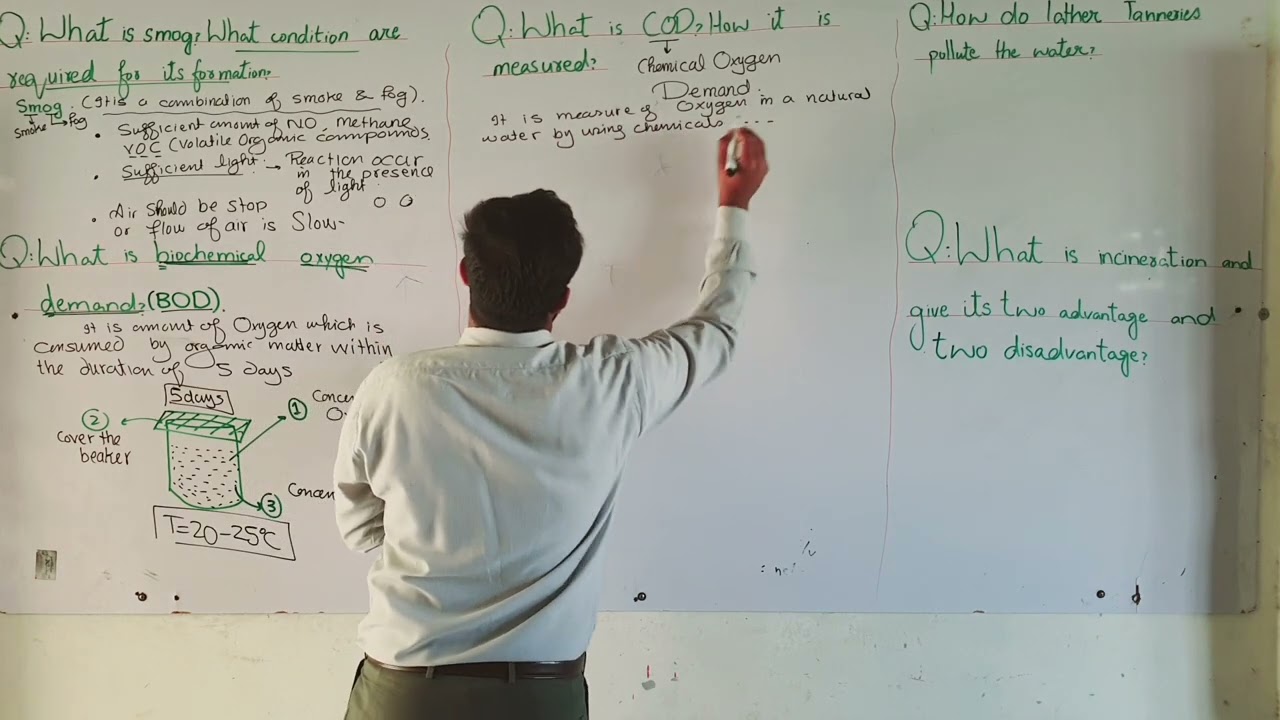 Q: What is smog? What condition are
required for its formation?
Smog. (It is a combination of smoke & fog).
Smoke fog
• Sufficient amount of NO, methane
VOC (Volatile Organic compounds
• Sufficient light: → Reaction occur
in the presence
of light.
• Air should be stop
or flow of air is Slow-
Q: What is biochemical oxygen
demand? (BOD).
It is amount of Oxygen which is
consumed by organic matter within
the duration of 5 days
5 days
① Concen
② Cover the
beaker
③ Concen
T=20-25°C
Q: What is COD? How it is
measured?
Chemical Oxygen
Demand.
It is measure of Oxygen in a natural
water by using chemicals ....
Q: How do lather Tanneries
pollute the water?
Q: What is incineration and
give its two advantage and
two disadvantage?